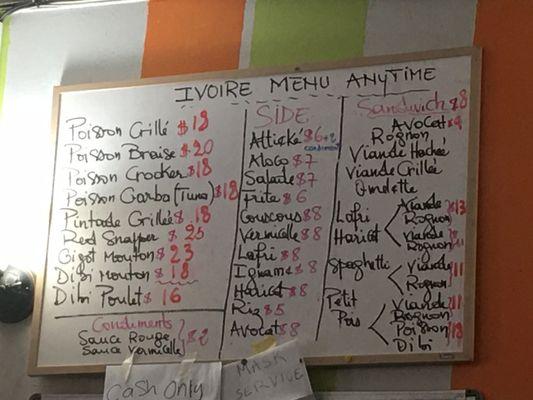 IVOIRE MENU ANYTIME
Poisson Grillé $18
Poisson Braise $20
Poisson Crooker $18
Poisson Garba (Tuna) $18
Pintade Grillée $18
Red Snapper $25
Gigot Mouton $23
Dibi Mouton $18
Dibi Poulet $16
Condiments
Sauce Rouge
Sauce Vermicelle } $2
SIDE
Attiéké $6+2
condiment
Aloco $7
Salade $7
Frite $6
Couscous $8
Vermicelle $8
Lafri $8
Igname $8
Haricot $8
Riz $5
Avocat $8
Sandwich $8
Avocat
Rognon
Viande Hachée
Viande Grillée
Omelette
Lafri
Haricot
Viande
Rognon
$13
Viande
Rognon
Spaghetti
Viande
Rognon
11
Petit
Pois
Viande
Rognon
11
Poisson
Dibi
18
Cash Only
MASK
SERVICE